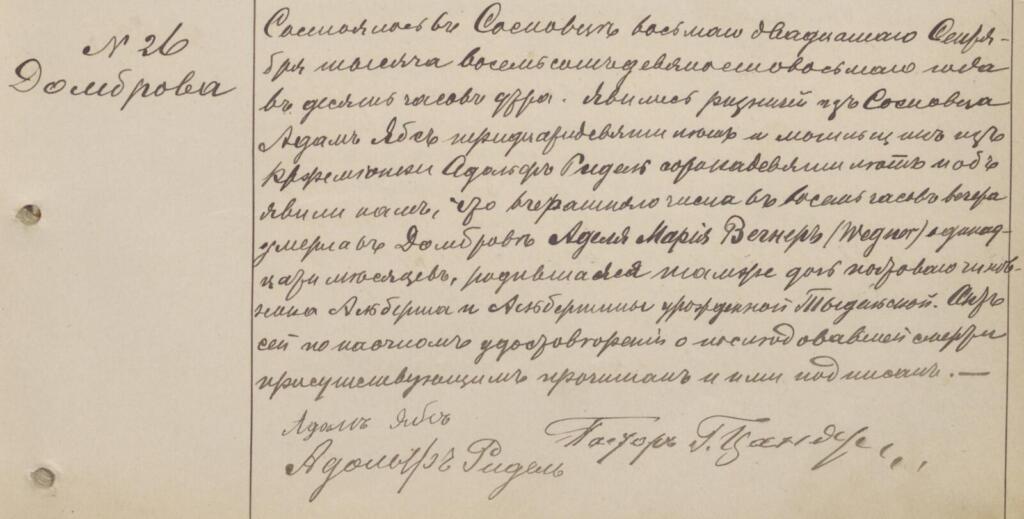 N 26
Домброва
Состоялось въ Сосновцѣ восьмаго двадцатаго Сентя-
бря тысяча восемьсотъ девяностовосьмаго года
въ десять часовъ утра. Явились резникъ изъ Сосновца
Адамъ Ябсъ тридцатидевяти лѣтъ и изъ
Адольфъ Ридель сорокадевяти лѣтъ и объ
явили намъ, что вчерашняго числа въ восемь часовъ вечера
умерла въ Домбровѣ Аделя Марія Вегнеръ (Wegner) одинад-
цати мѣсяцевъ, родившаяся тамже дочь почтоваго чинов-
ника Альберта и Альбертины урожденной Актъ
сей по наочномъ удостовѣреніи о послѣдовавшей смерти
присутствующимъ прочитанъ и ими подписанъ. —
Адамъ Ябсъ
Адольфъ Ридель Пасторъ Г. Цандеръ